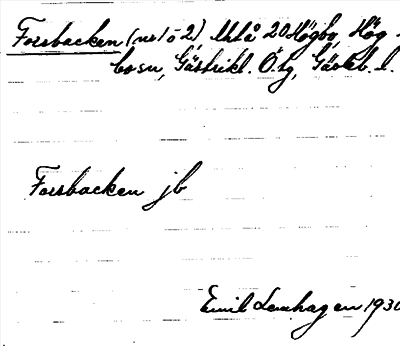 Forsbacken (nr 1 o 2), Utå 20 Högbo, Hög-
bo sn, Gästrikl. Ö. tg, Gävleb. l.
Forsbacken jb
Emil Lenhagen 1930